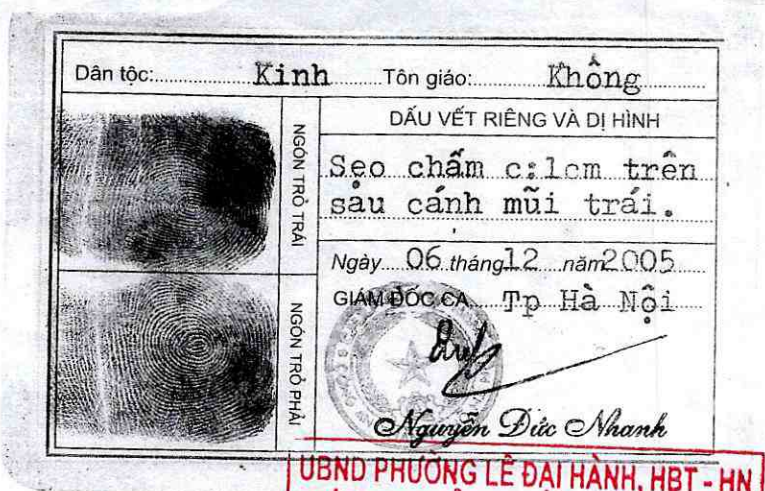 Dân tộc: Kinh Tôn giáo: Không
NGÓN TRỎ TRÁI
DẤU VẾT RIÊNG VÀ DỊ HÌNH
Sẹo chấm c:1cm trên
sau cánh mũi trái.
Ngày 06 tháng 12 năm 2005
GIÁM ĐỐC CA Tp Hà Nội
NGÓN TRỎ PHẢI
Nguyễn Đức Nhanh
UBND PHƯỜNG LÊ ĐẠI HÀNH, HBT - HN